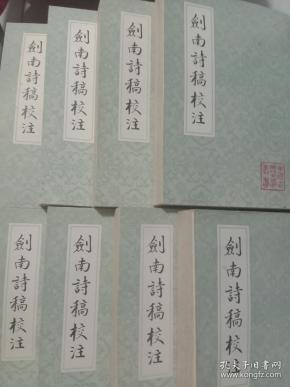 劍南詩稿校注
劍南詩稿校注
劍南詩稿校注
劍南詩稿校注
劍南詩稿校注
劍南詩稿校注
劍南詩稿校注
劍南詩稿校注
孔夫子旧书网